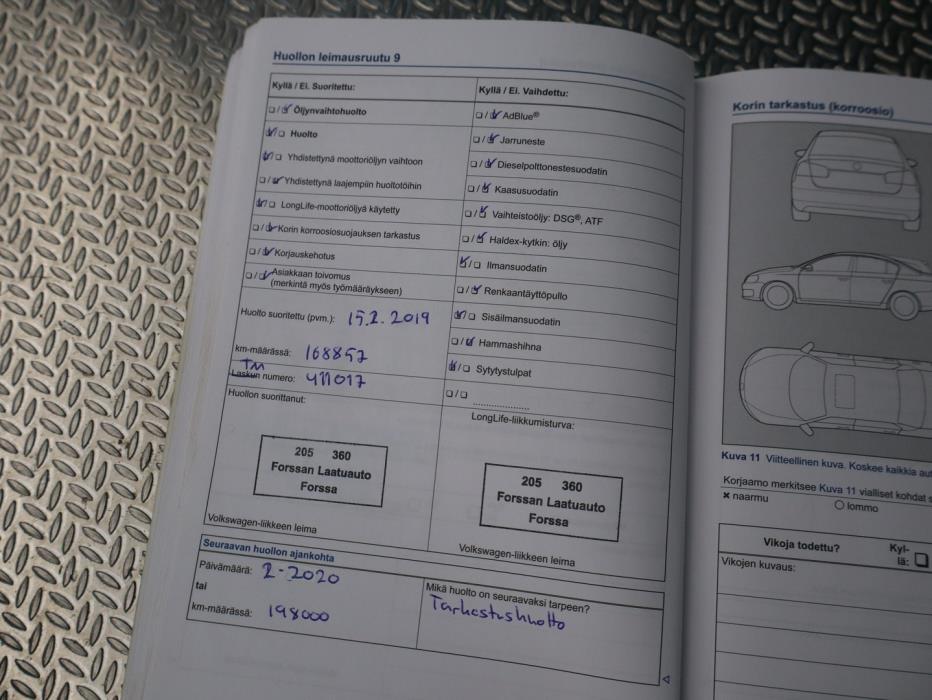 Huollon leimausruutu 9
Kyllä / Ei. Suoritettu:
Öljynvaihtohuolto
Huolto
Yhdistettynä moottoriöljyn vaihtoon
Yhdistettynä laajempiin huoltotöihin
LongLife-moottoriöljyä käytetty
Korin korroosiosuojauksen tarkastus
Korjauskehotus
Asiakkaan toivomus
(merkintä myös työmääräykseen)
Huolto suoritettu (pvm.): 15.2.2019
km-määrässä: 168857
TM
Laskun numero: 411017
Huollon suorittanut:
205 360
Forssan Laatuauto
Forssa
Volkswagen-liikkeen leima
Kyllä / Ei. Vaihdettu:
AdBlue®
Jarruneste
Dieselpolttonestesuodatin
Kaasusuodatin
Vaihteistoöljy: DSG®, ATF
Haldex-kytkin: öljy
Ilmansuodatin
Renkaantäyttöpullo
Sisäilmansuodatin
Hammashihna
Sytytystulpat
LongLife-liikkumisturva:
205 360
Forssan Laatuauto
Forssa
Volkswagen-liikkeen leima
Seuraavan huollon ajankohta
Päivämäärä: 2-2020
tai
km-määrässä: 198000
Mikä huolto on seuraavaksi tarpeen?
Tarkastushuolto
Korin tarkastus (korroosio)
Kuva 11 Viitteellinen kuva. Koskee kaikkia
Korjaamo merkitsee Kuva 11 vialliset kohdat
× naarmu
○ lommo
Vikoja todettu?
Kyl-
lä:
Vikojen kuvaus: